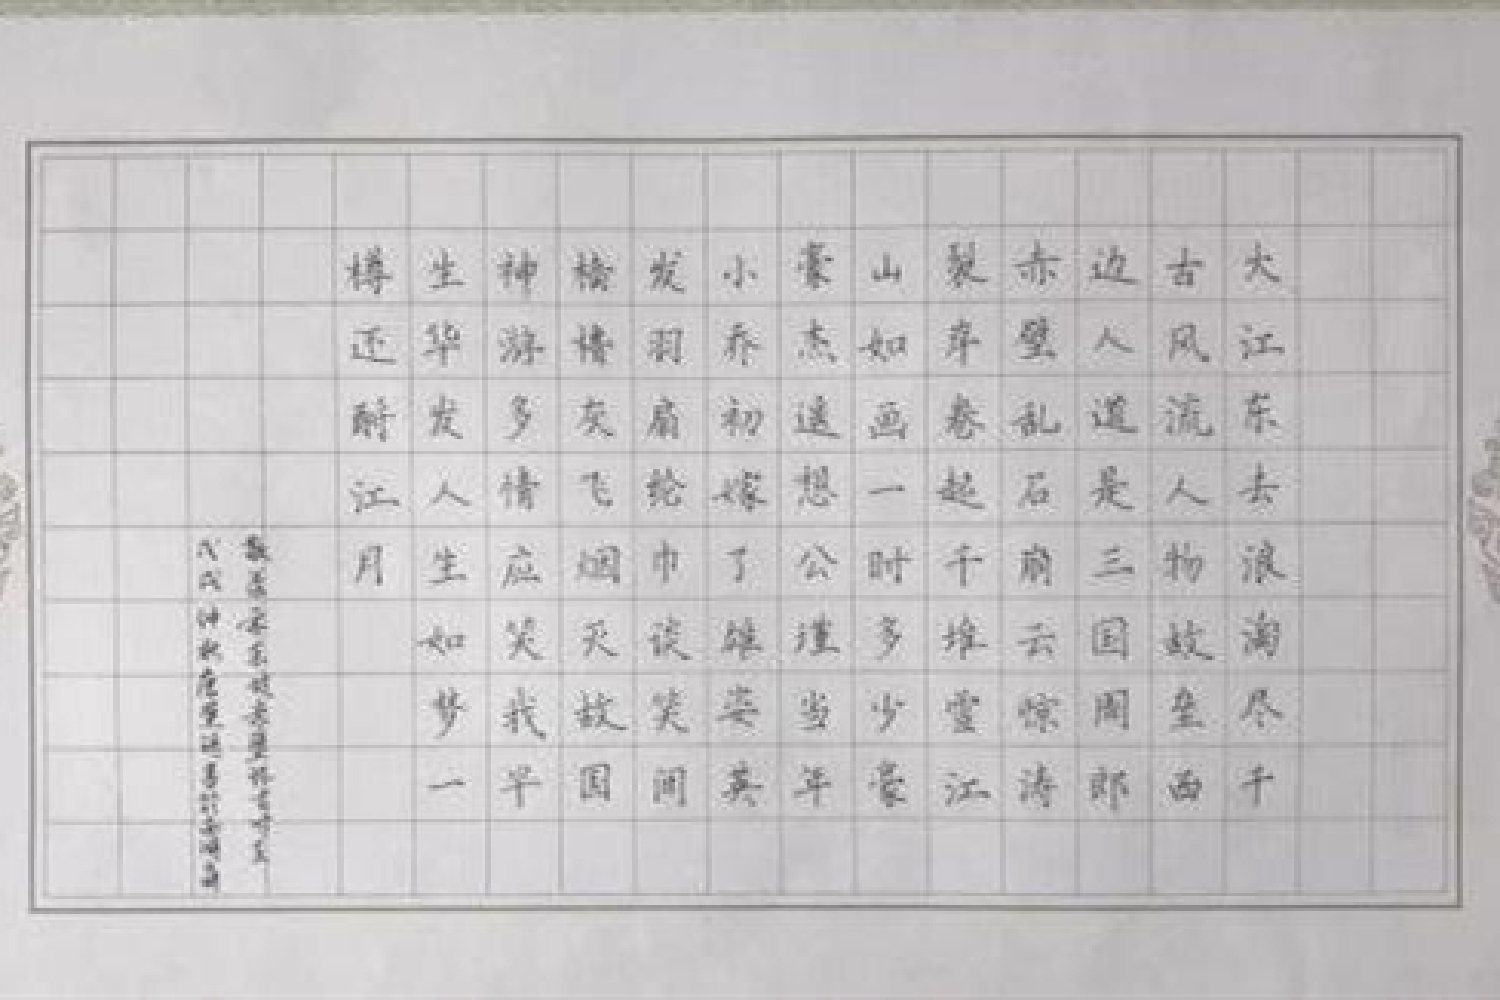 大江东去浪淘尽千
古风流人物故垒西
边人道是三国周郎
赤壁乱石崩云惊涛
裂岸卷起千堆雪江
山如画一时多少豪
豪杰遥想公瑾当年
小乔初嫁了雄姿英
发羽扇纶巾谈笑间
樯橹灰飞烟灭故国
神游多情应笑我早
生华发人生如梦一
樽还酹江月